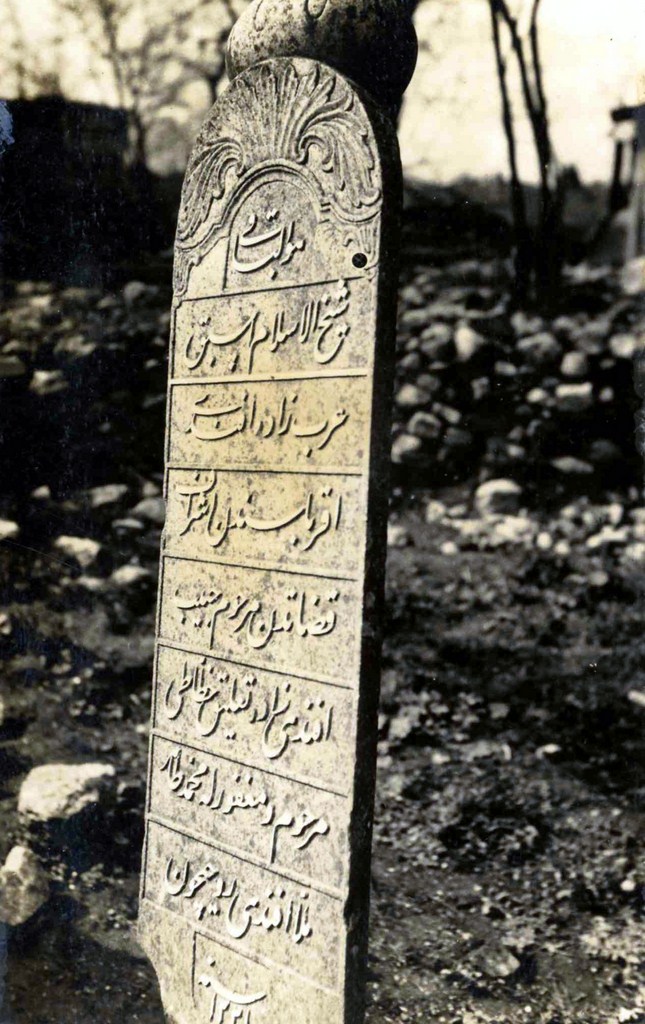 هو الباقی
شیخ الاسلام اسبق
عرب زاده افندی
اقرباسندن اشراف
قضاتدن مرحوم حبیب
افندی زاده تعلیق خطاطی
مرحوم و مغفور له محمد عطاء
الله افندی روحیچون
سنه ١٢٢١